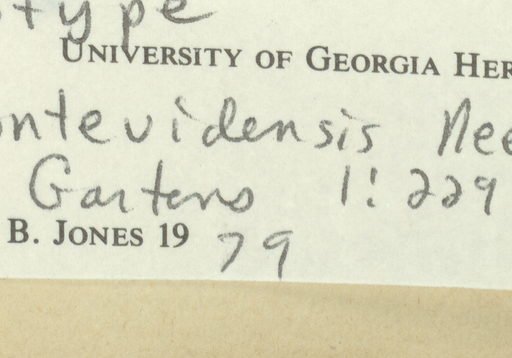 type
UNIVERSITY OF GEORGIA HER
ntevidensis Nee
Gartens 1:229
B. JONES 19 79